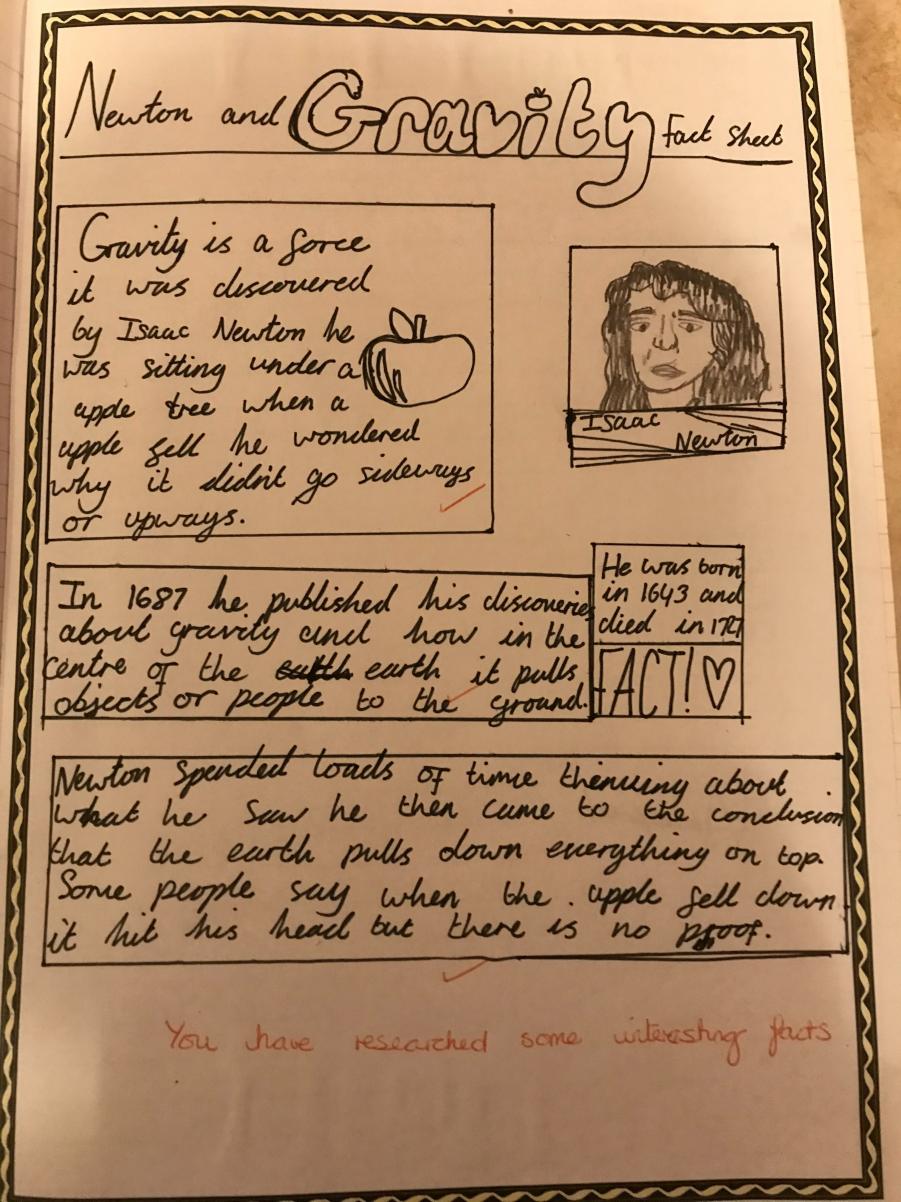 Newton and Gravity Fact Sheet
Gravity is a force
it was discovered
by Isaac Newton he
was sitting under a
apple tree when a
apple fell he wondered
why it didn't go sideways
or upways.
Isaac
Newton
In 1687 he published his discoveries
about gravity and how in the
centre of the earth it pulls
objects or people to the ground.
He was born
in 1643 and
died in 1727
FACT!
Newton spended loads of time about
what he saw he then came to the conclusion
that the earth pulls down everything on top.
Some people say when the apple fell down
it hit his head but there is no proof.
You have researched some interesting facts